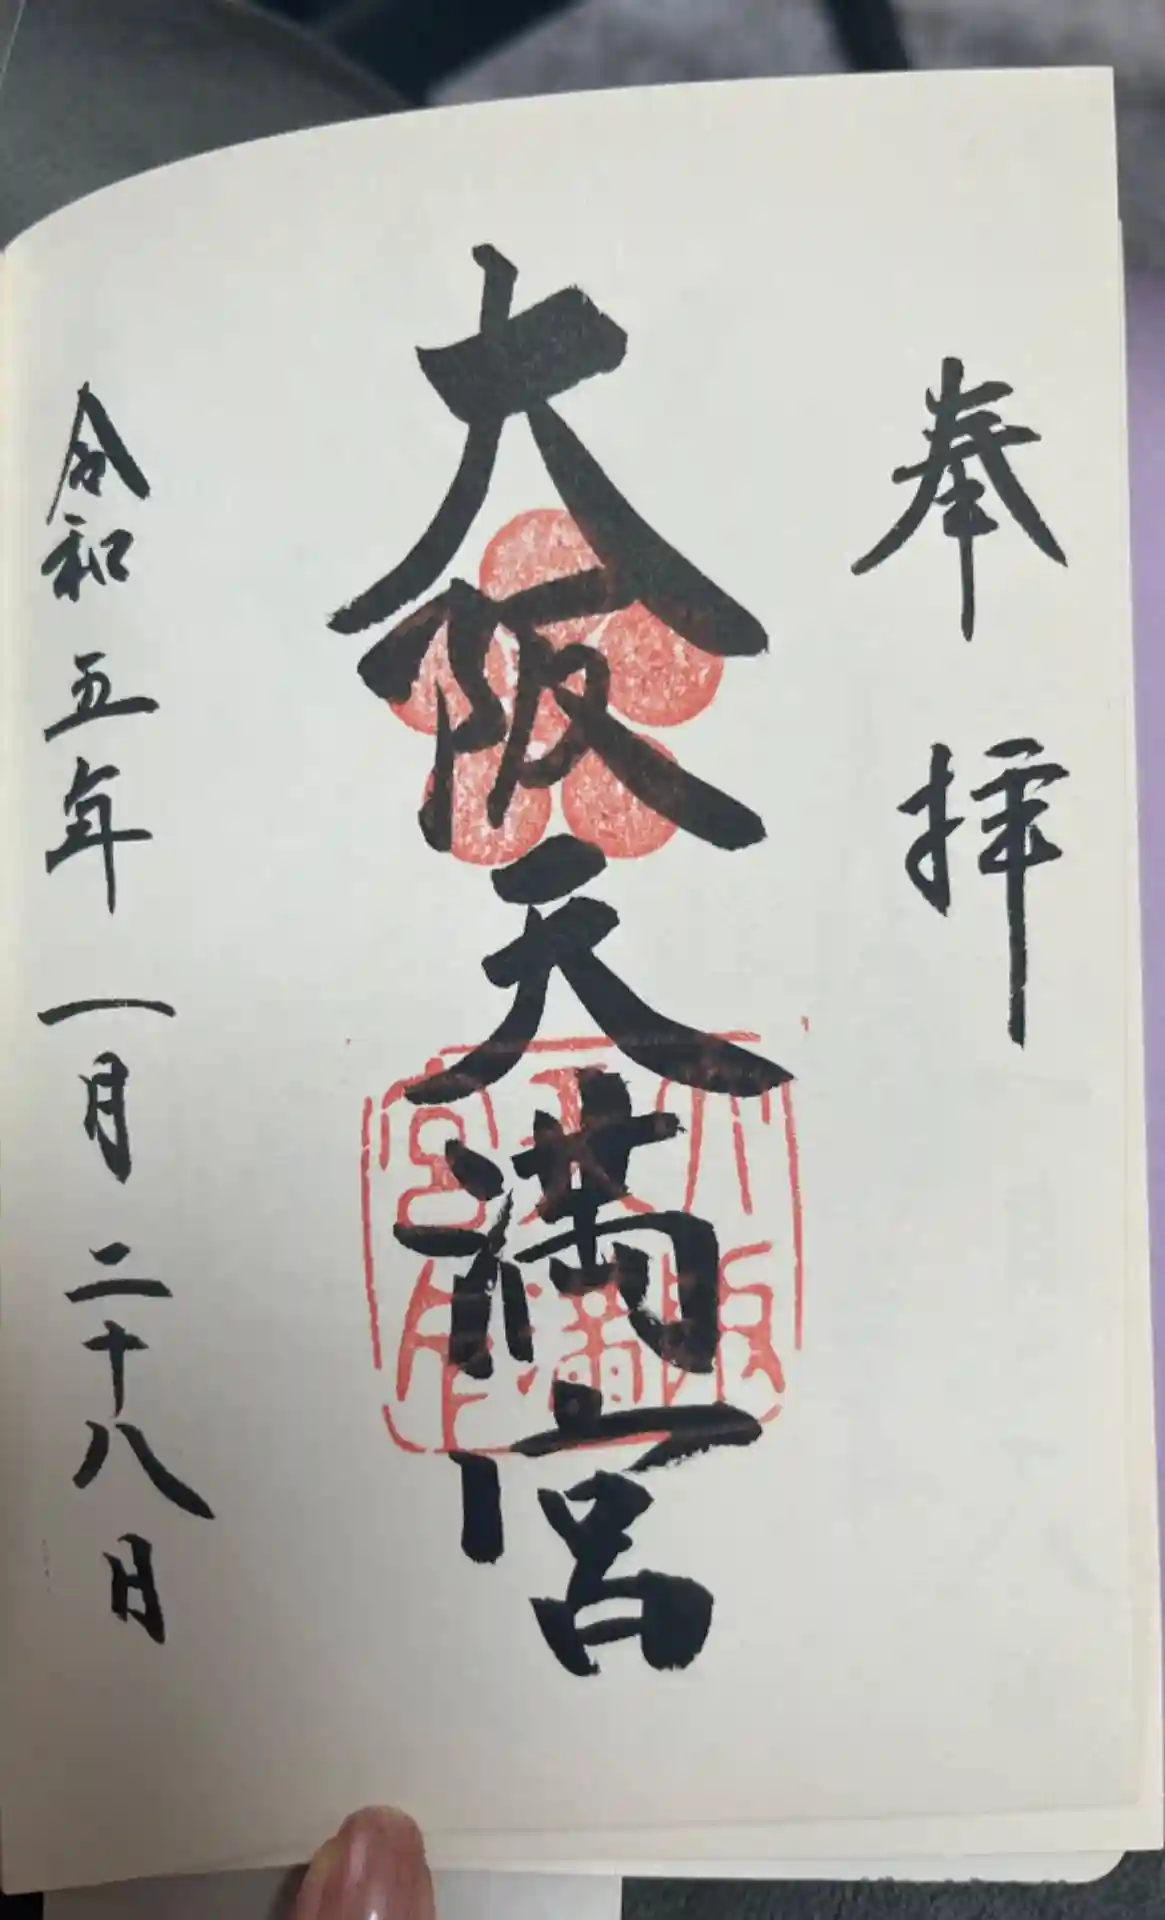 奉拝
大阪天満宮
大阪
天満
宮印
令和五年一月二十八日